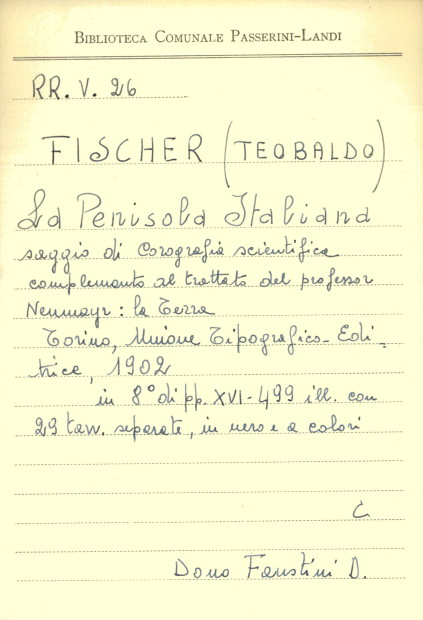 BIBLIOTECA COMUNALE PASSERINI-LANDI
RR. V. 26
FISCHER (TEOBALDO)
La Penisola Italiana
saggio di Corografia scientifica
complemento al trattato del professor
Neumayr: la Terra
Torino, Unione Tipografico-Edi-
trice, 1902
in 8° di pp. XVI-499 ill. con
29 tavv. separate, in nero e a colori
C
Dono Faustini D.